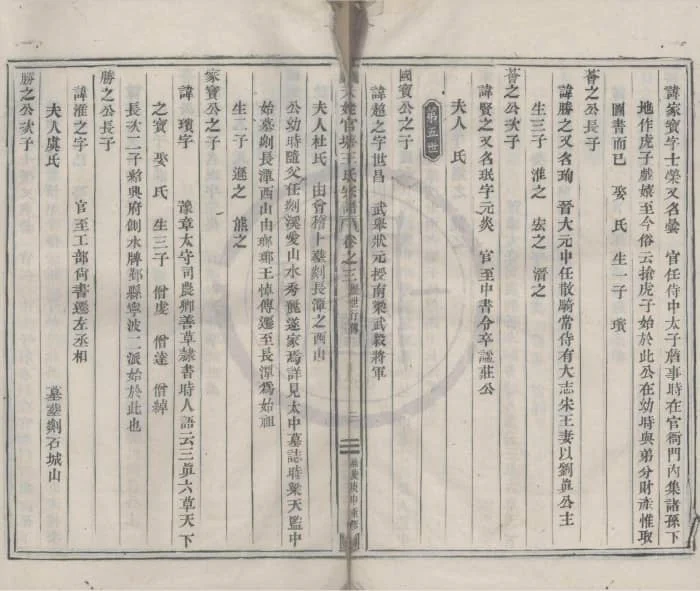 諱家寶字士榮又名彙 官任侍中太子詹事時在官衙門內集諸孫下
地作虎子戲嬉至今俗云搶虎子始於此公在幼時與弟分財產惟取
圖書而已 娶 氏 生一子 瓚
薈之公長子
諱勝之又名珣 晉大元中任散騎常侍有大志宋王妻以劉眞公主
生三子 淮之 宏之 溍之
薈之公次子
諱賢之又名珉字元炎 官至中書令卒諡莊公
夫人 氏
第五世
國寶公之子
諱越之字世昌 武舉狀元授南梁武毅將軍
夫人杜氏 由會稽卜塟剡長潭之西山
公幼時隨父任剡溪愛山水秀麗遂家焉詳見太中墓誌時梁天監中
始墓剡長潭西山由瑯琊王悼傳遷至長潭爲始祖
生二子 遜之 熊之
家寶公之子
諱 瓚字 豫章太守司農卿善草隸書時人語云三眞六草天下
之寶 娶 氏 生三子 僧虔 僧達 僧綽
長次二子紹興府嵊水牌鄞縣寧波二派始於此也
勝之公長子
諱淮之字 官至工部尙書遷左丞相
夫人虞氏 墓塟剡石城山
勝之公次子
王氏宗譜 卷之三